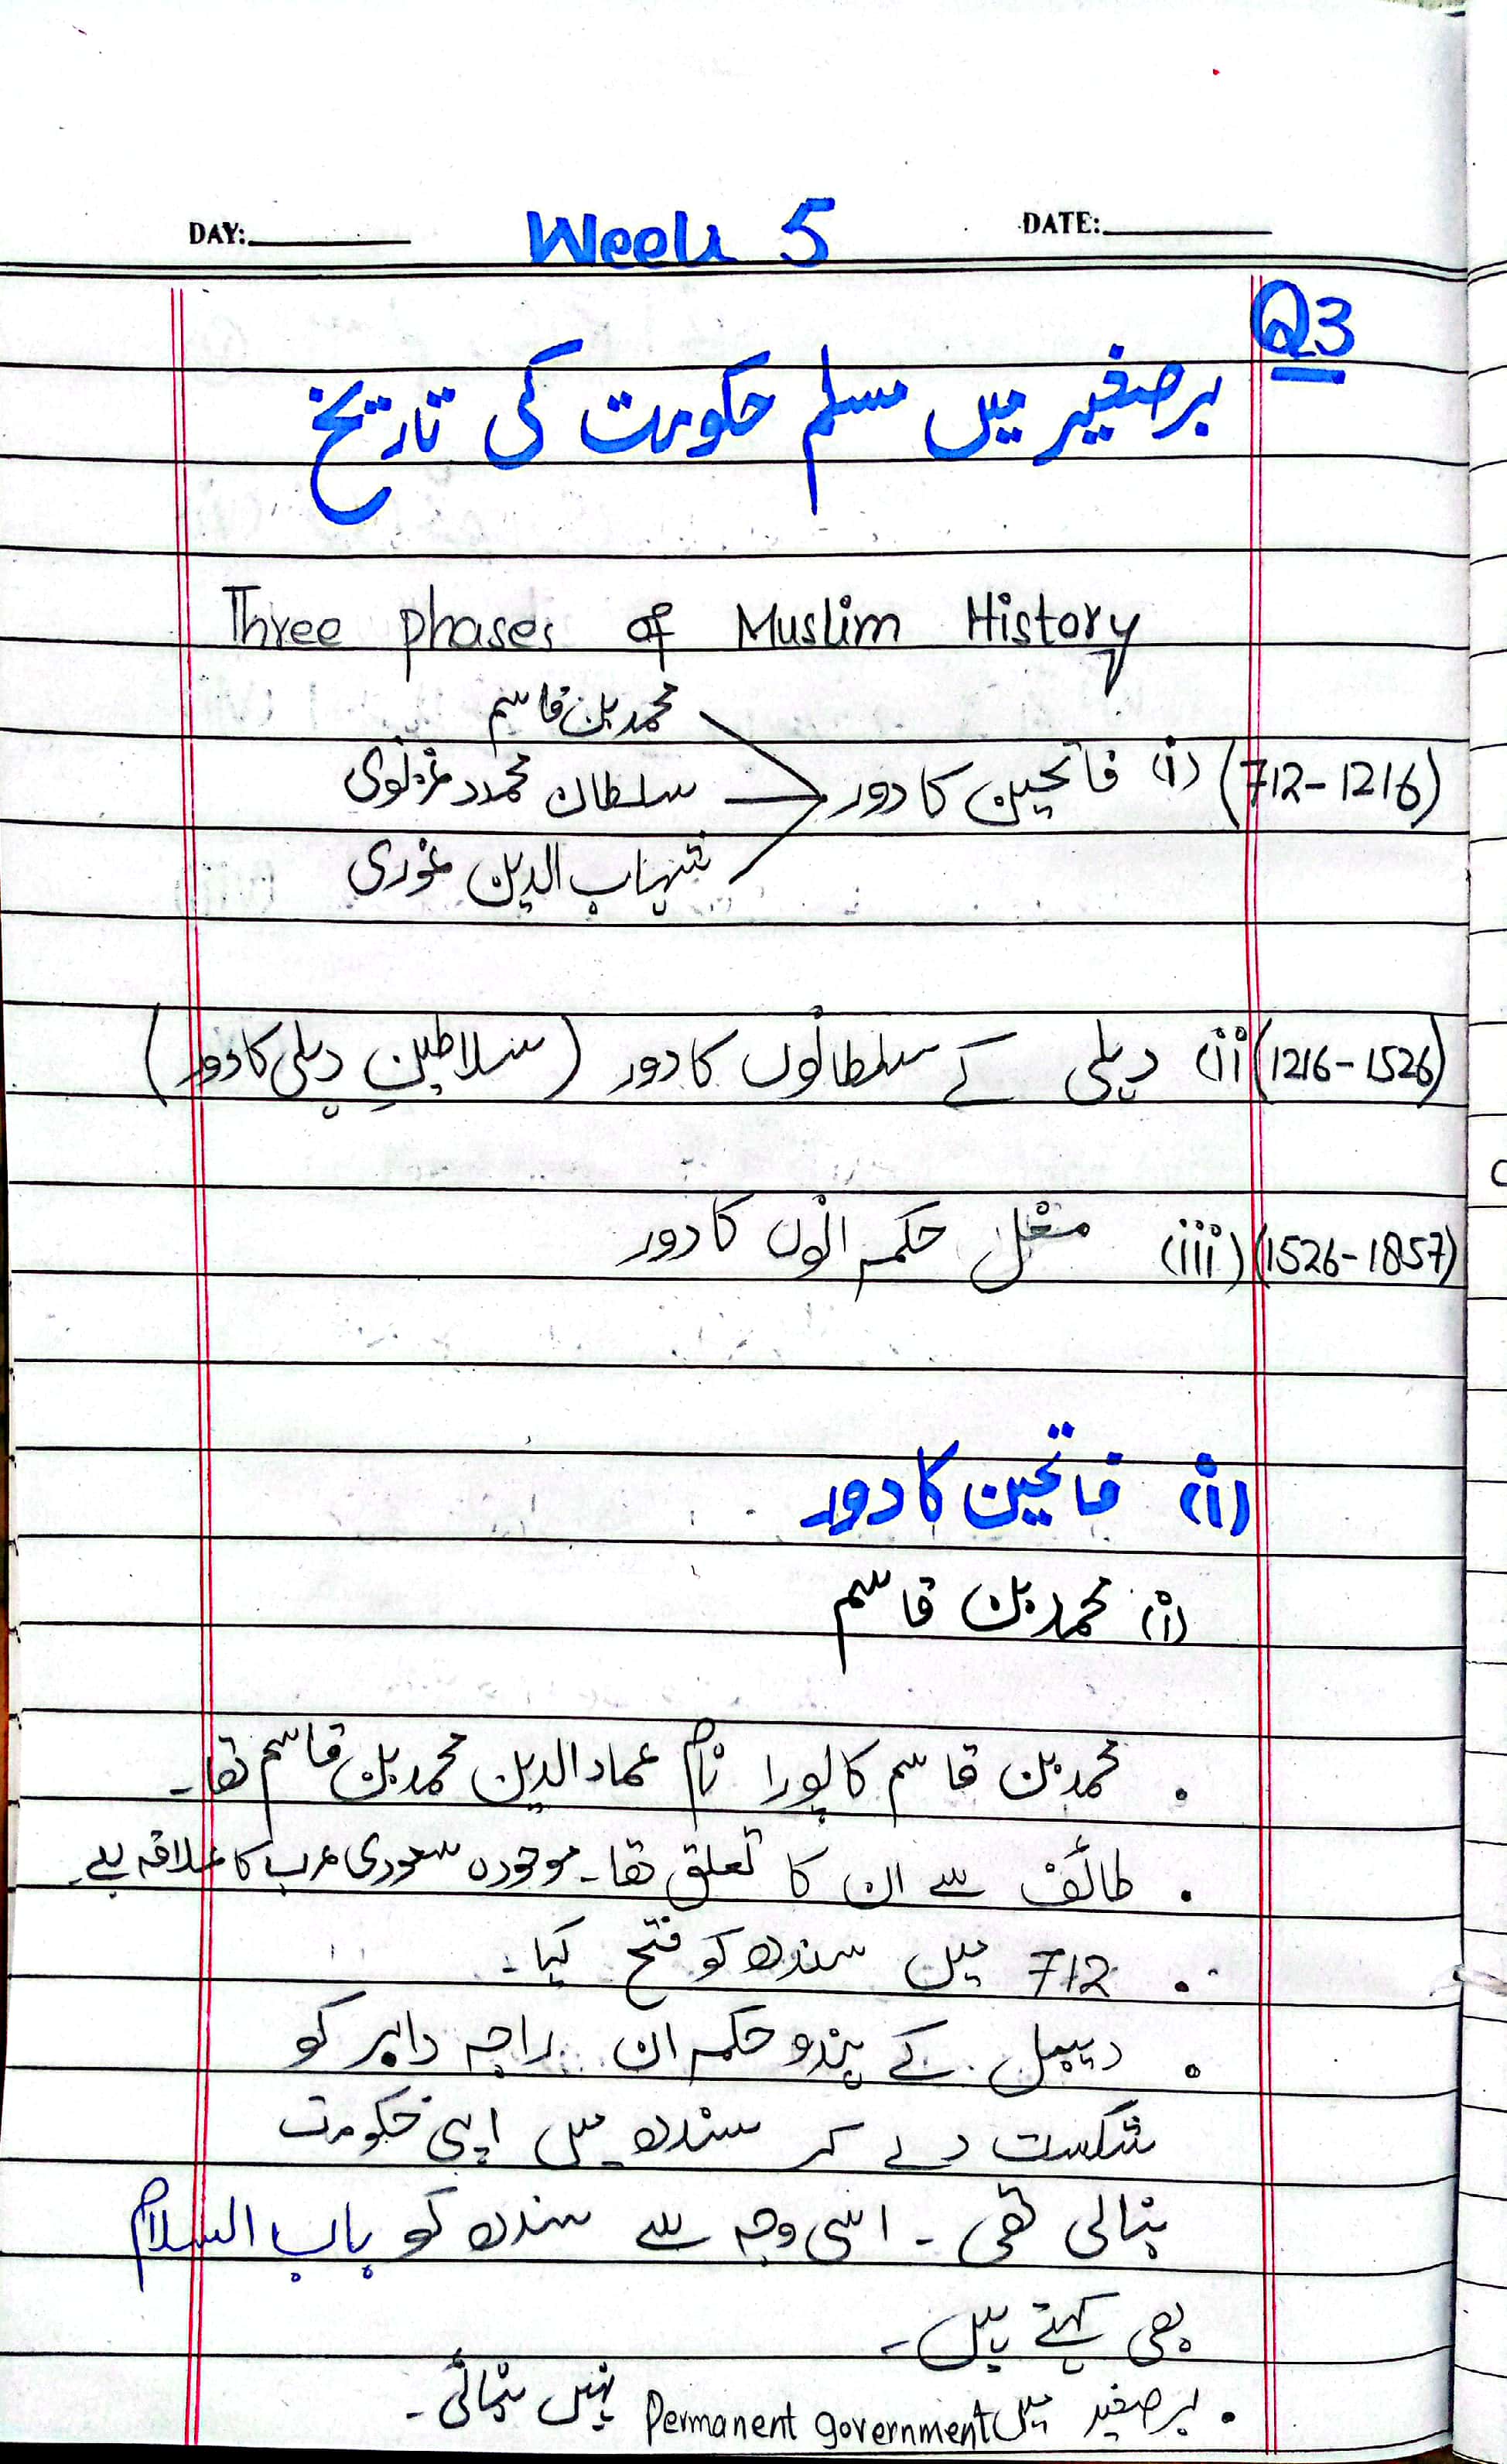 DAY: Week 5 DATE:
Q3
برصغیر میں مسلم حکومت کی تاریخ
Three phases of Muslim History
محمد بن قاسم
(712-1216) (i) فاتحین کا دور سلطان محمود غزنوی
شہاب الدین غوری
(1216-1526) (ii) دہلی کے سلطانوں کا دور (سلاطینِ دہلی کا دور)
(1526-1857) (iii) مغل حکمرانوں کا دور
(i) فاتحین کا دور
(i) محمد بن قاسم
• محمد بن قاسم کا پورا نام عماد الدین محمد بن قاسم تھا۔
• طائف سے ان کا تعلق تھا۔ موجودہ سعودی عرب کا علاقہ ہے۔
• 712 میں سندھ کو فتح کیا۔
• دیبل کے ہندو حکمران راجہ داہر کو
شکست دے کر سندھ میں اپنی حکومت
بنالی تھی ۔ اسی وجہ سے سندھ کو باب السلام
بھی کہتے ہیں۔
• برصغیر میں Permanent government نہیں بنائی۔